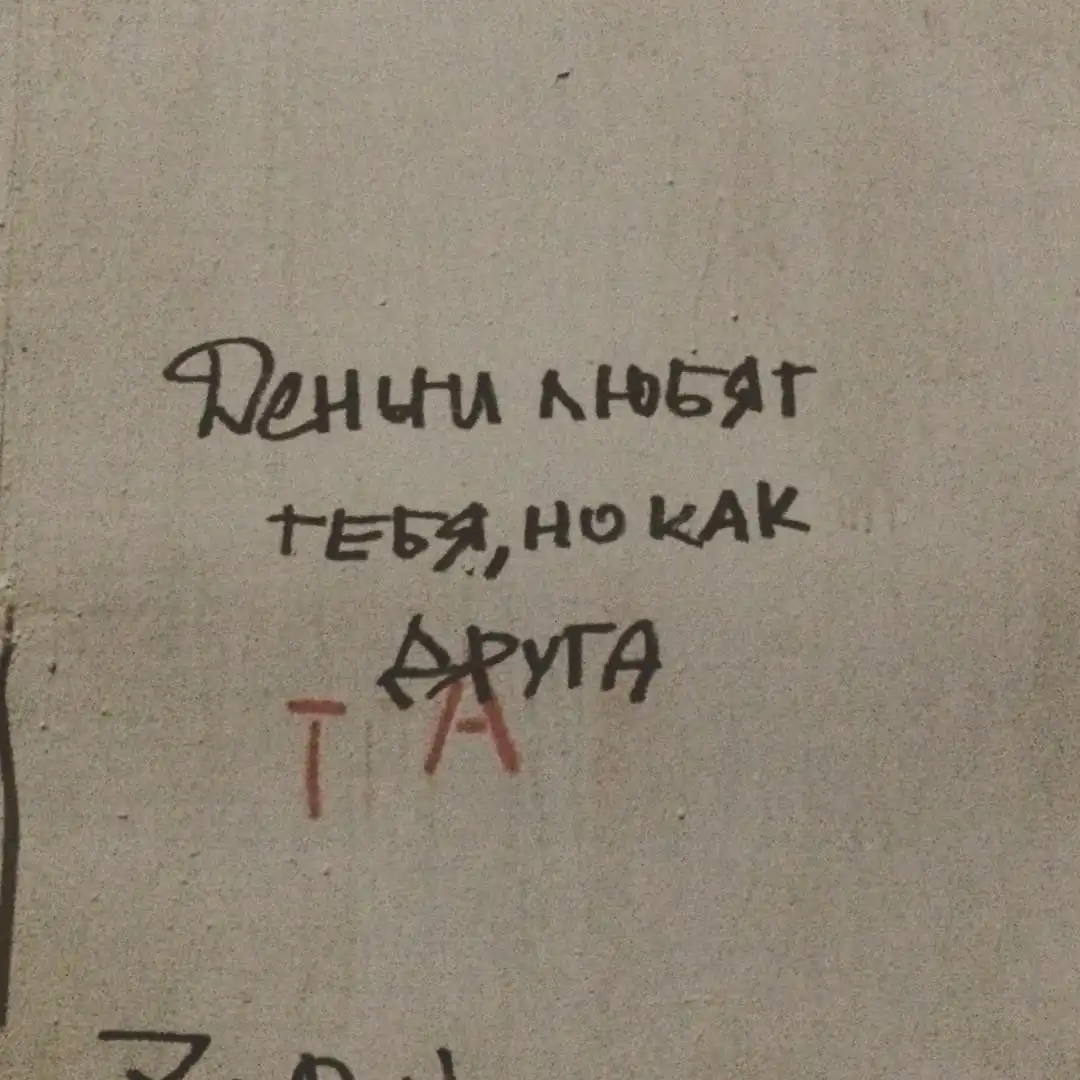 Деньги любят
тебя, но как
друга
Т А